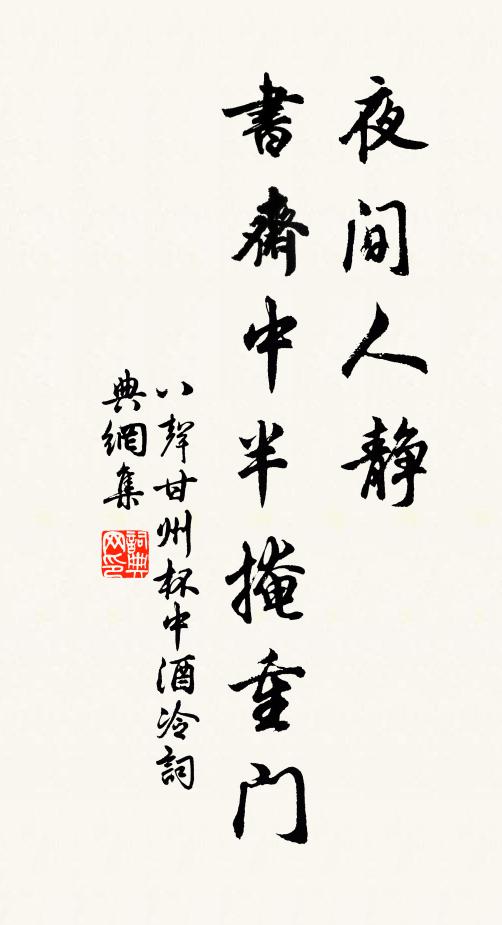 夜间人静
書齋中半掩重门
八聲甘州杯中酒冷詞
典網集
詞典
网印